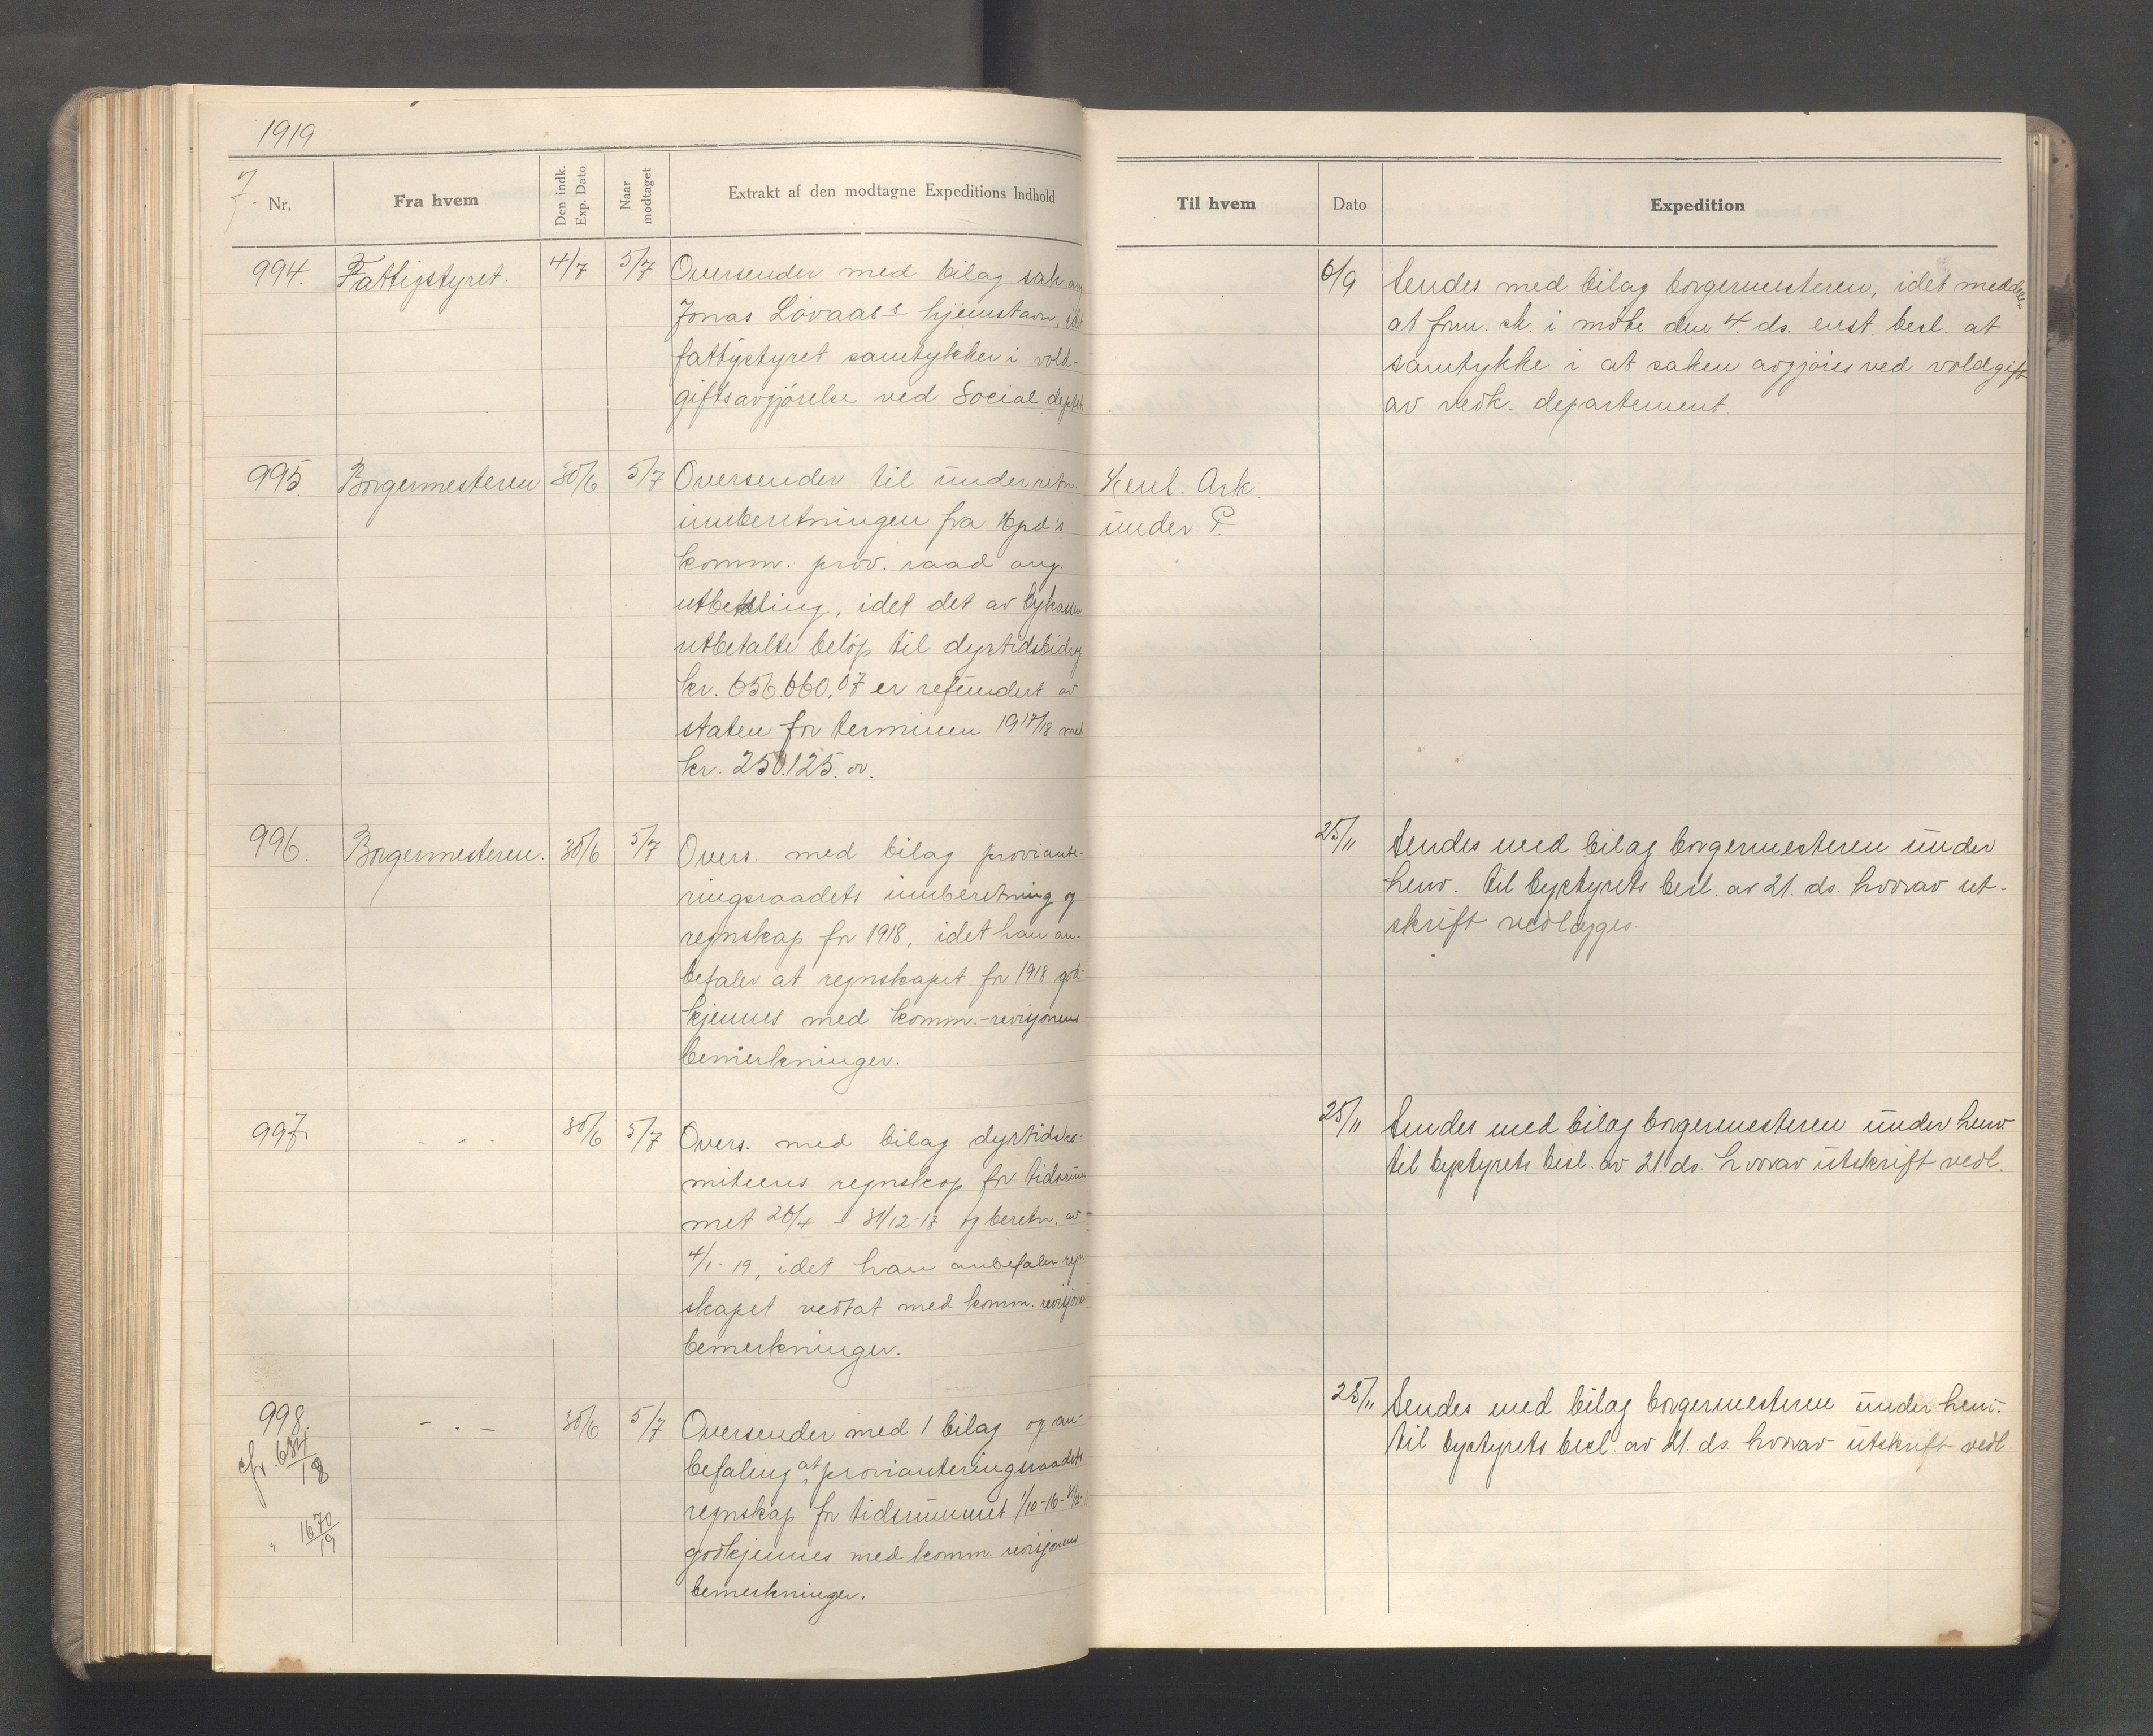 1919
Nr.
Fra hvem
Den indk. Exp. Dato
Naar modtaget
Extrakt af den modtagne Expeditions Indhold
Til hvem
Dato
Expedition
994. Fattigstyret. 4/7 5/7 Oversender med bilag sak
Jonas Lövaas's hjemstavn,
fattigstyret samtykker i vold-
giftsavgjörelse ved Social
6/9 Sendes med bilag borgermesteren, idet
at form. sk. i möte den 4. ds. enst. besl. at
samtykke i at saken avgjöres ved voldgift
av vedk. departement.
995. Borgermesteren 30/6 5/7 Oversender til underretn.
innberetningen fra
komm. prov. raad ang.
utbetaling, idet det av bykassen
utbetalte belöp til dyrtidsbidrag
kr. 656.660,07 er refundert av
staten for terminen 1917/18 med
kr. 250.125.
Ark.
under P.
996. Borgermesteren. 30/6 5/7 Overs. med bilag proviante-
ringsraadets innberetning og
regnskap for 1918, idet han an-
befaler at regnskapet for 1918 god-
kjennes med komm.-revisjonens
bemerkninger.
25/11 Sendes med bilag borgermesteren under
henv. til bystyrets besl. av 21. ds. hvorav ut-
skrift vedlægges.
997. - " - 30/6 5/7 Overs. med bilag dyrtidsko-
miteens regnskap for tidsrum
met 26/4 - 31/12-17 og beretn. av
4/1-19, idet han anbefaler regn
skapet vedtat med komm. revisjonens
bemerkninger.
25/11 Sendes med bilag borgermesteren under henv
til bystyrets besl. av 21 ds. hvorav utskrift vedl.
998. - " - 30/6 5/7 Oversender med 1 bilag og an-
cfr. 634/18
befaling at provianteringsraadets
regnskap for tidsrummet 1/10-16 - 31/12-
" 1670/19
godkjennes med komm. revisjonens
bemerkninger.
25/11 Sendes med bilag borgermesteren under henv.
til bystyrets besl. av 21. ds. hvorav utskrift vedl.